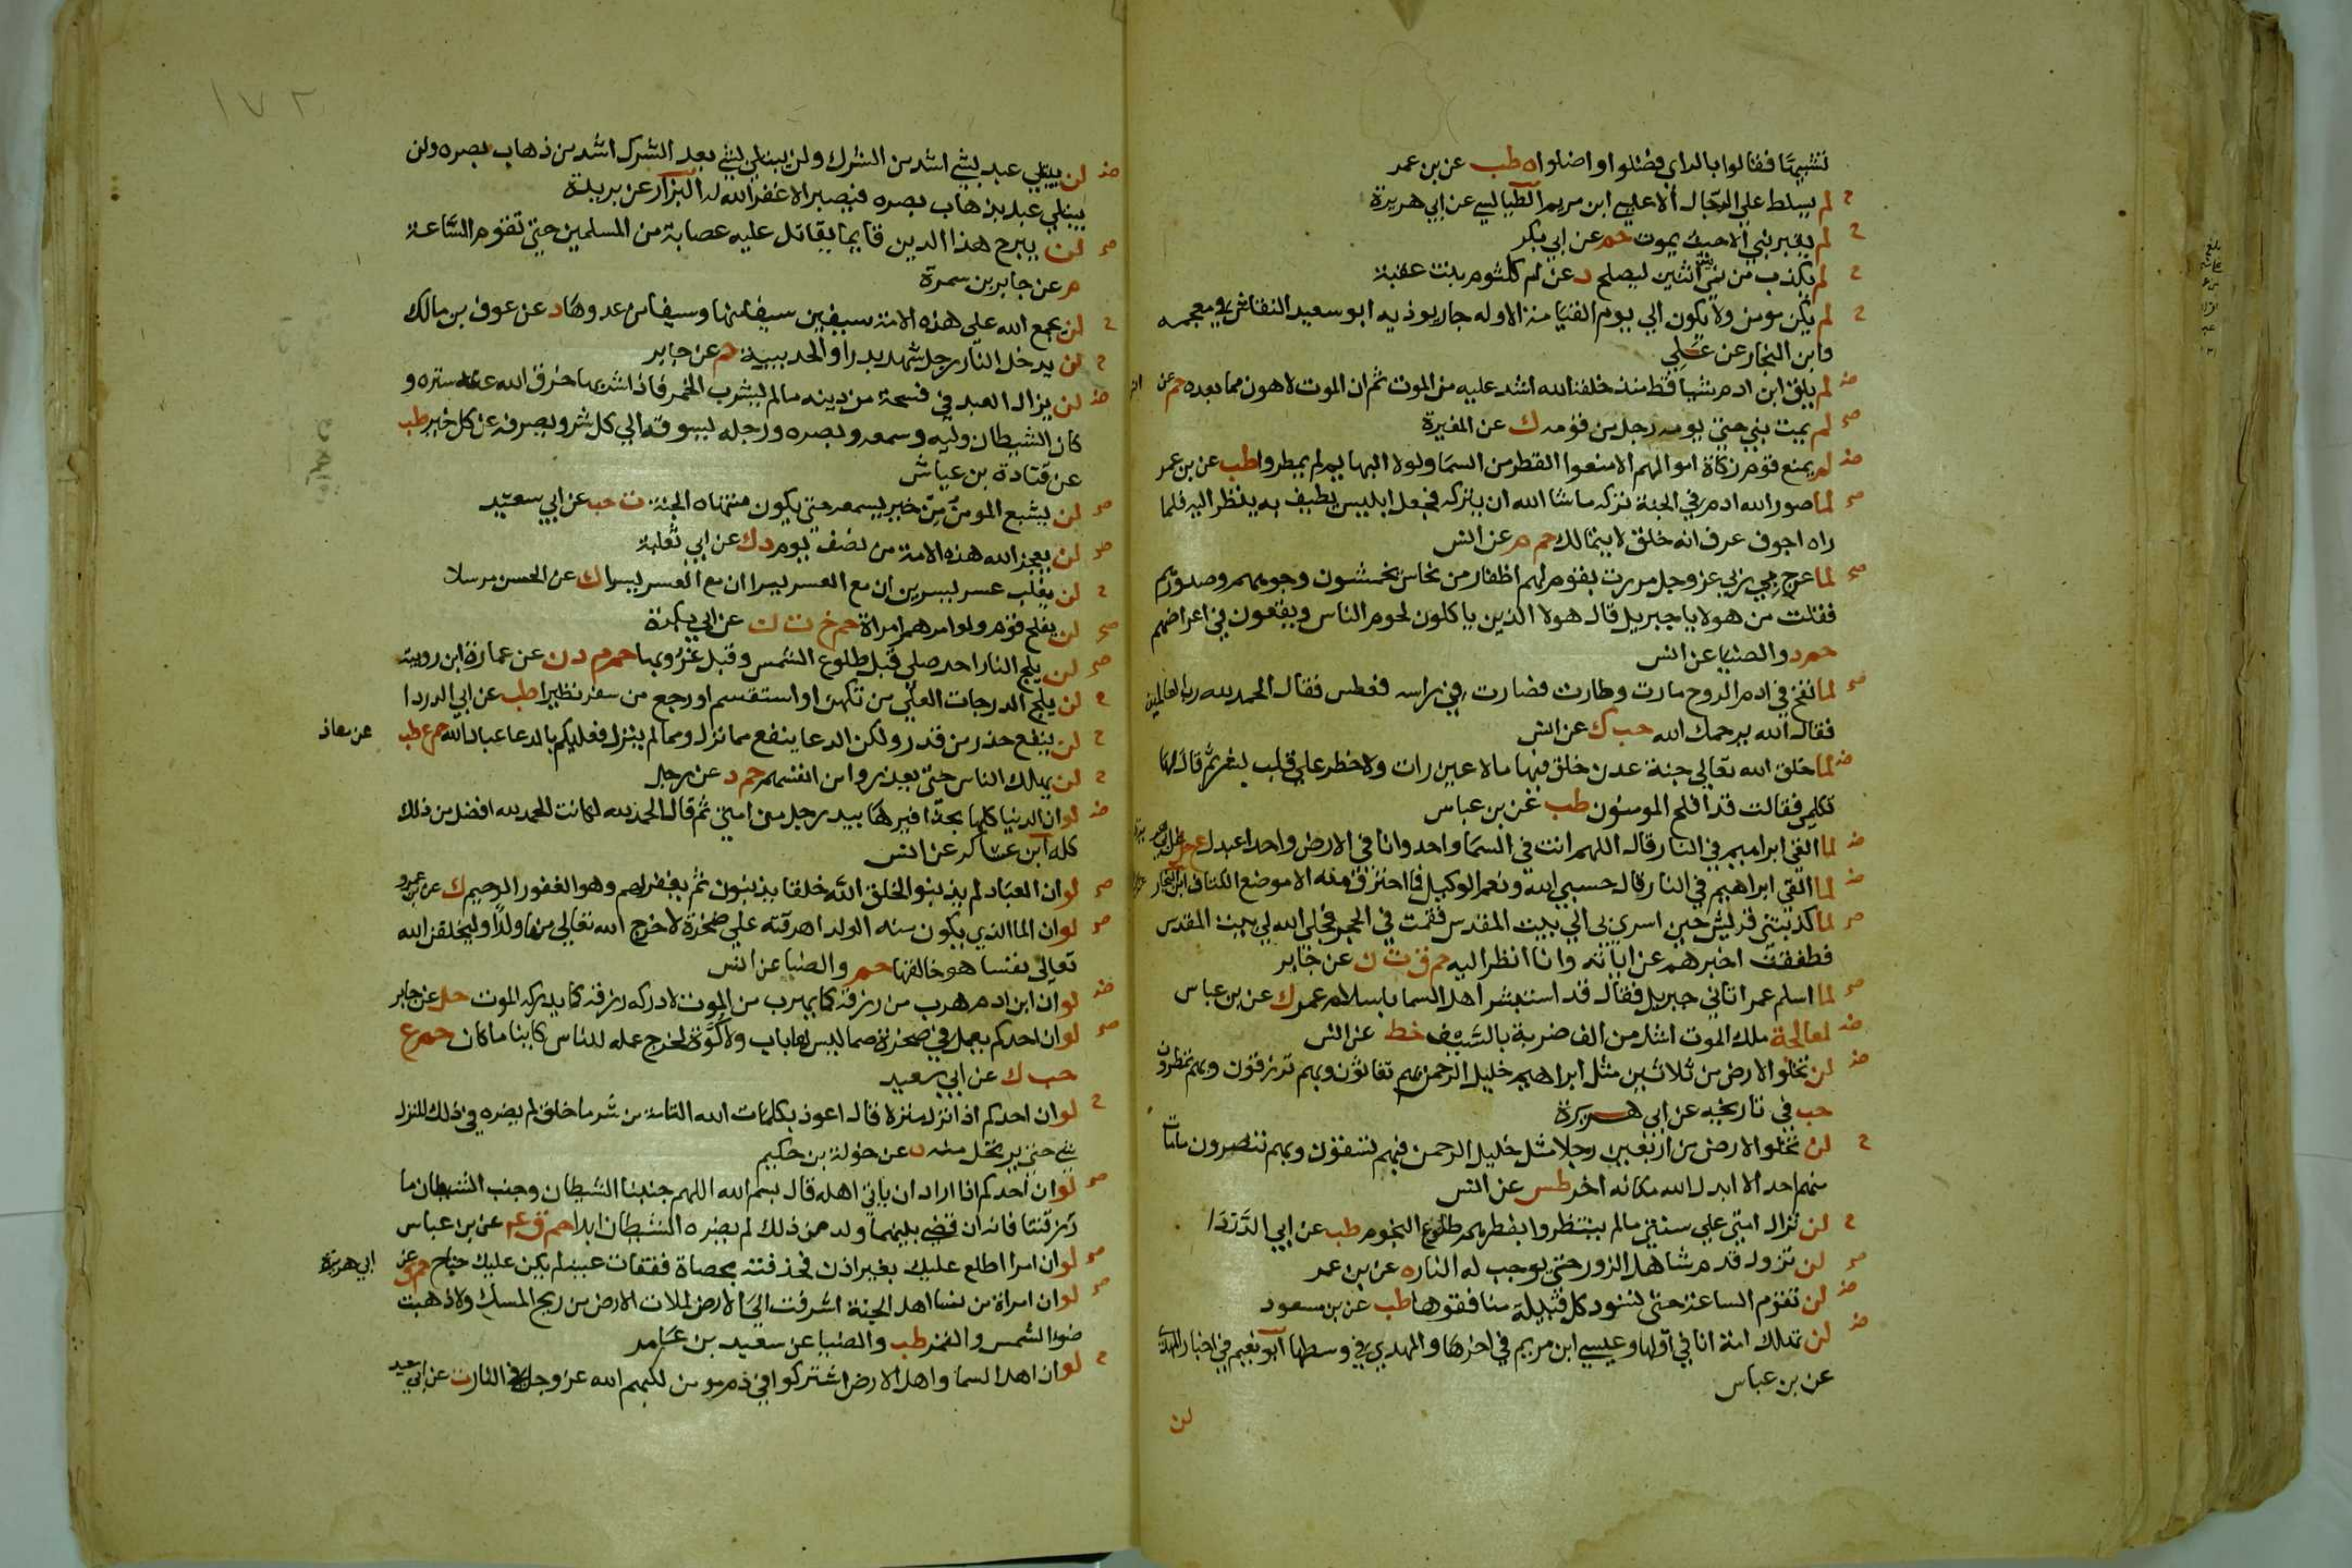 تنشيبها فقالوا بالداي فضلوا واضلوا ه طب عن بن عمر
ح لم يسلط علي الدجال الا عيسي ابن مريم الطيالسي عن ابي هريرة
ح لم يقبر نبي الا حيث يموت حم عن ابي بكر
ح لم يكذب من نمي بين اثنين ليصلح د عن ام كلثوم بنت عقبة
ح لم يكن مومن ولا يكون الي يوم القيامة الا وله جار يوذيه ابو سعيد النقاش في معجمه
وابن النجار عن علي
ض لم يلق ابن ادم شيا قط منذ خلقه الله اشد عليه من الموت ثم ان الموت لاهون مما بعده حم عن
صح لم يمت نبي حتي يومه رجل من قومه ك عن المغيرة
ض لم يمنع قوم زكاة اموالهم الا منعوا القطر من السما ولولا البهايم لم يمطروا طب عن بن عمر
صح لما صور الله ادم في الجنة تركه ما شا الله ان يتركه فجعل ابليس يطيف به ينظر اليه فلما
راه اجوف عرف انه خلق لا يتمالك حم م عن انس
صح لما عرج بي ربي عز وجل مررت بقوم لهم اظفار من نحاس يخمشون وجوههم وصدورهم
فقلت من هولا يا جبريل قال هولا الذين ياكلون لحوم الناس ويقعون في اعراضهم
حم د والضيا عن انس
صح لما نفخ في ادم الروح مارت وطارت فصارت في راسه فعطس فقال الحمد لله رب العالمين
فقال الله يرحمك الله حب ك عن انس
ض لما خلق الله تعالي جنة عدن خلق فيها ما لا عين رات ولا خطر علي قلب بشر ثم قال لها
تكلمي فقالت قد افلح المومنون طب عن بن عباس
ض لما القي ابراهيم في النار قال اللهم انت في السما واحد وانا في الارض واحد اعبدك ع حل
ض لما القي ابراهيم في النار قال حسبي الله ونعم الوكيل فما احترق منه الا موضع الكتاف ابن النجار
صح لما كذبتني قريش حين اسري بي الي بيت المقدس قمت في الحجر فجلي الله لي بيت المقدس
فطفقت اخبرهم عن اياته وانا انظر اليه حم ق ت ن عن جابر
صح لما اسلم عمر اتاني جبريل فقال قد استبشر اهل السما باسلام عمر ك عن بن عباس
ض لمعالجة ملك الموت اشد من الف ضربة بالسيف خط عن انس
ض لن تخلو الارض من ثلاثين مثل ابراهيم خليل الرحمن بهم تغاثون وبهم ترزقون وبهم تمطرون
حب في تاريخه عن ابي هريرة
ح لن تخلو الارض من اربعين رجلا مثل خليل الرحمن فبهم تسقون وبهم تنصرون ما مات
منهم احد الا ابدل الله مكانه اخر طس عن انس
ح لن تزال امتي علي سنتي ما لم ينتظروا بفطرهم طلوع النجوم طب عن ابي الدردا
صح لن تزول قدم شاهد الزور حتي يوجب له النار ه عن بن عمر
ض لن تقوم الساعة حتي تسود كل قبيلة منافقوها طب عن بن مسعود
ض لن تهلك امة انا في اولها وعيسي ابن مريم في اخرها والمهدي في وسطها ابو نعيم في اخبار المهدي
عن بن عباس
لن
١٧٢
ض لن يبتلي عبد بشي اشد من الشرك ولن يبتلي بشي بعد الشرك اشد من ذهاب بصره ولن
يبتلي عبد بذهاب بصره فيصبر الا غفر الله له البزار عن بريدة
صح لن يبرح هذا الدين قايما يقاتل عليه عصابة من المسلمين حتي تقوم الساعة
م عن جابر بن سمرة
ح لن يجمع الله علي هذه الامة سيفين سيفا منها وسيفا من عدوها د عن عوف بن مالك
ح لن يدخل النار رجل شهد بدرا والحديبية حم عن جابر
ض لن يزال العبد في فسحة من دينه ما لم يشرب الخمر فاذا شربها خرق الله عنه ستره و
كان الشيطان وليه وسمعه وبصره ورجله يسوقه الي كل شر ويصرفه عن كل خير طب
عن قتادة بن عياش
صح لن يشبع المومن من خير يسمعه حتي يكون منتهاه الجنة ت حب عن ابي سعيد
صح لن يعجز الله هذه الامة من نصف يوم د ك عن ابي ثعلبة
ح لن يغلب عسر يسرين ان مع العسر يسرا ان مع العسر يسرا ك عن الحسن مرسلا
صح لن يفلح قوم ولوا امرهم امراة حم خ ت ن عن ابي بكرة
صح لن يلج النار احد صلي قبل طلوع الشمس وقبل غروبها حم م د ن عن عمارة ابن رويبة
ح لن يلج الدرجات العلي من تكهن او استقسم او رجع من سفر تطيرا طب عن ابي الدردا
ح لن ينفع حذر من قدر ولكن الدعا ينفع مما نزل ومما لم ينزل فعليكم بالدعا عباد الله حم ع طب عن معاذ
ح لن يهلك الناس حتي يعذروا من انفسهم حم د عن رجل
ض لو ان الدنيا كلها بحذافيرها بيد رجل من امتي ثم قال الحمد لله لكانت الحمد لله افضل من ذلك
كله ابن عساكر عن انس
صح لو ان العباد لم يذنبوا لخلق الله خلقا يذنبون ثم يغفر لهم وهو الغفور الرحيم ك عن بن عمرو
صح لو ان الما الذي يكون منه الولد اهرقته علي صخرة لاخرج الله تعالي منها ولدا وليخلقن الله
تعالي نفسا هو خالقها حم والضيا عن انس
ض لو ان ابن ادم هرب من رزقه كما يهرب من الموت لادركه رزقه كما يدركه الموت حل عن جابر
صح لو ان احدكم يعمل في صخرة صما ليس لها باب ولا كوة لخرج عمله للناس كاينا ما كان حم ع
حب ك عن ابي سعيد
ح لو ان احدكم اذا نزل منزلا قال اعوذ بكلمات الله التامة من شر ما خلق لم يضره في ذلك المنزل
شي حتي يرتحل منه ه عن خولة بن حكيم
صح لو ان احدكم اذا اراد ان ياتي اهله قال بسم الله اللهم جنبنا الشيطان وجنب الشيطان ما
رزقتنا فانه ان قضي بينهما ولد من ذلك لم يضره الشيطان ابدا حم ق ع عن بن عباس
صح لو ان امرا اطلع عليك بغير اذن فخذفته بحصاة ففقات عينه لم يكن عليك جناح حم ق عن ابي هريرة
صح لو ان امراة من نسا اهل الجنة اشرفت الي الارض لملات الارض من ريح المسك ولاذهبت
ضو الشمس والقمر طب والضيا عن سعيد بن عامر
ح لو ان اهل السما واهل الارض اشتركوا في دم مومن لكبهم الله عز وجل في النار ت عن ابي سعيد